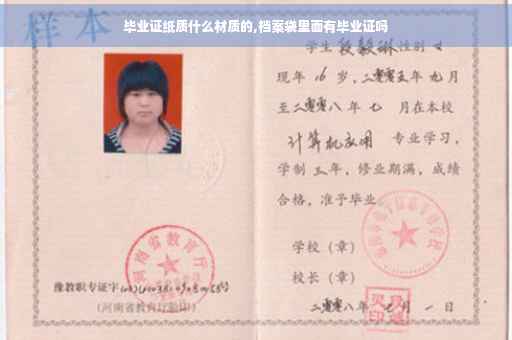 毕业证纸质什么材质的,档案袋里面有毕业证吗
样本
学生 段毅琳 性别 女
现年 16 岁，二零零五年 九 月
至二零零八年 七 月在本校
计算机应用 专业学习，
学制 三 年，修业期满，成绩
合格，准予毕业
学校（章）
校长（章）
二零零八年 月 一 日
河南省教育厅
豫教职专证字
(河南省教育厅验印)